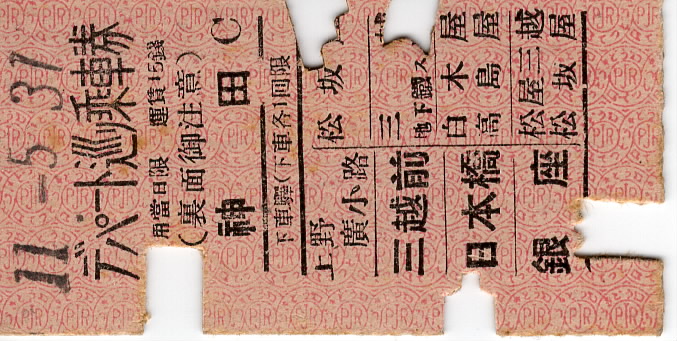 11-5 31
デパート巡り乗車券
用當日限 運賃15錢
(裏面御注意)
神田 C
下車驛(下車各1回限
上野廣小路 松坂
三越前 三 地下鐵ス
日本橋 白木屋 高島屋
銀座 松屋 三越 松坂屋